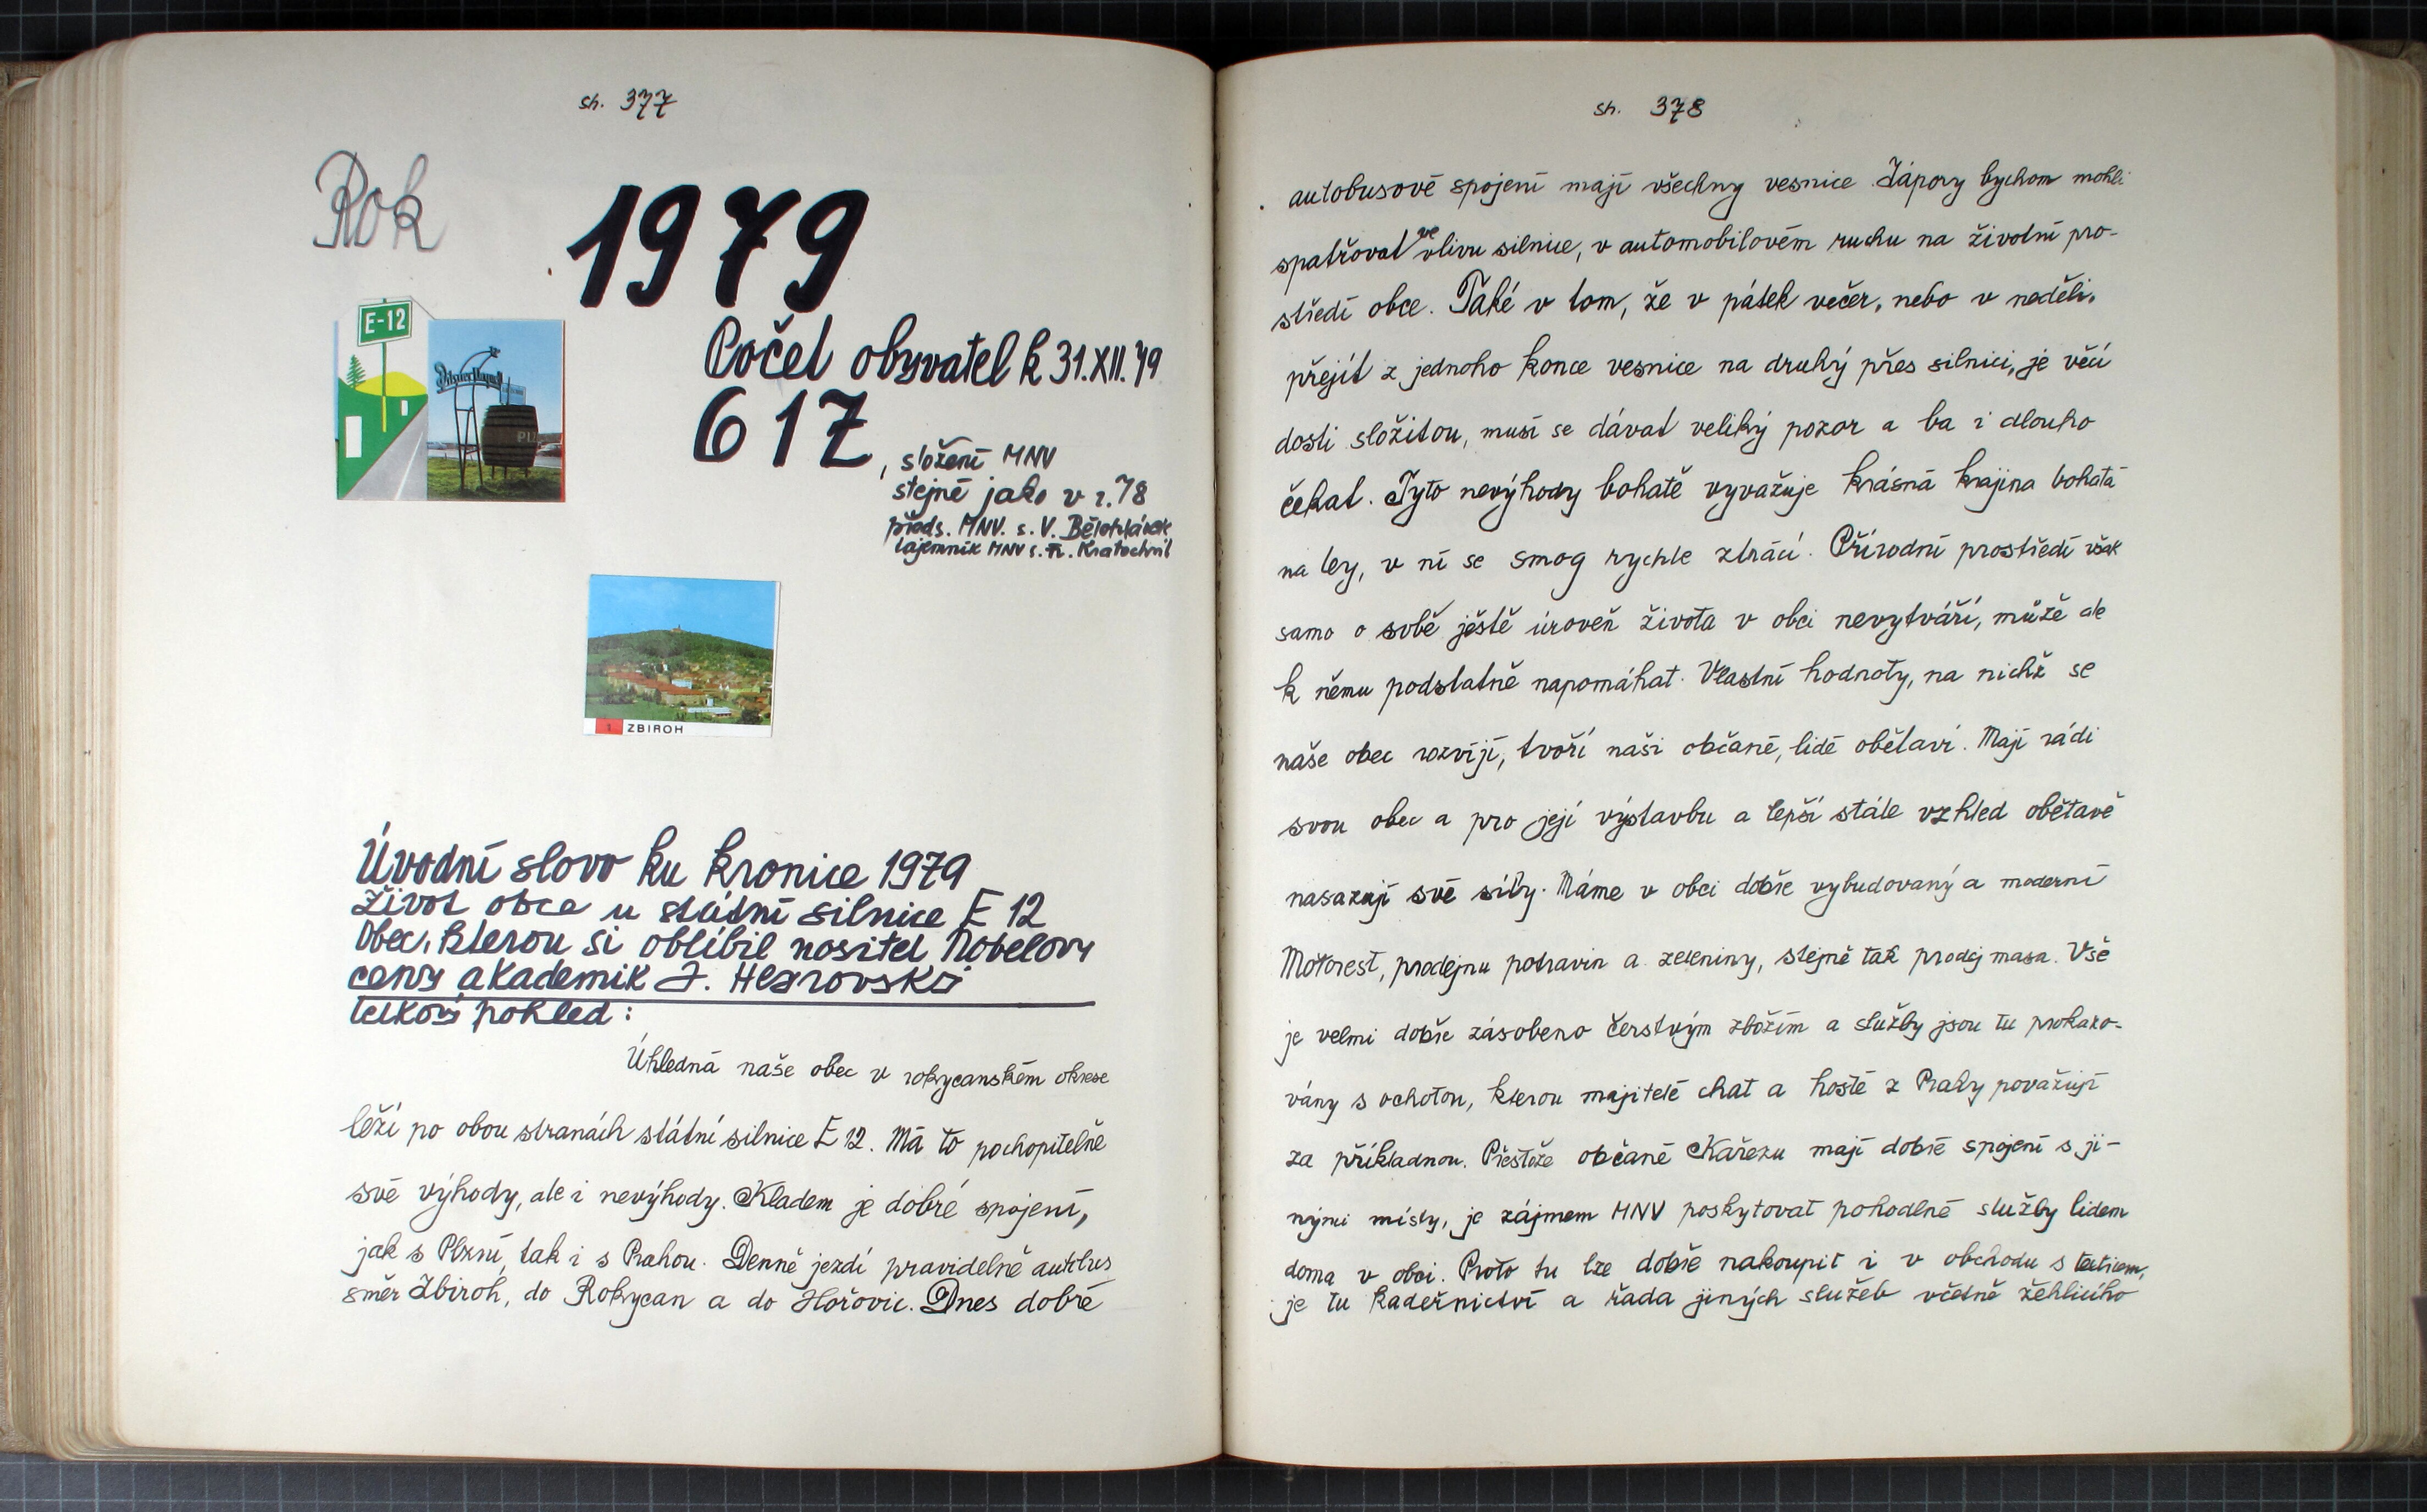 str. 377
Rok
1979
E-12
Pilsner Urquell
PLZ
Počet obyvatel k 31.XII.79
617, složení MNV
stejné jako v r. 78
předs. MNV. s. V. Bělohlávek
tajemník MNV s. Fr. Kratochvíl
1 ZBIROH
Úvodní slovo ku kronice 1979
Život obce u státní silnice E 12
Obec, kterou si oblíbil nositel Nobelovy
ceny akademik J. Heyrovský
Celkový pohled:
Úhledná naše obec v rokycanském okrese
leží po obou stranách státní silnice E 12. Má to pochopitelně
své výhody, ale i nevýhody. Kladem je dobré spojení,
jak s Plzní, tak i s Prahou. Denně jezdí pravidelně autobus
směr Zbiroh, do Rokycan a do Hořovic. Dnes dobré
str. 378
autobusové spojení mají všechny vesnice. Zápory bychom mohli
spatřovat ve vlivu silnice, v automobilovém ruchu na životní pro-
středí obce. Také v tom, že v pátek večer, nebo v neděli,
přejít z jednoho konce vesnice na druhý přes silnici, je věcí
dosti složitou, musí se dávat veliký pozor a ba i dlouho
čekat. Tyto nevýhody bohatě vyvažuje krásná krajina bohatá
na lesy, v ní se smog rychle ztrácí. Přírodní prostředí však
samo o sobě ještě úroveň života v obci nevytváří, může ale
k němu podstatně napomáhat. Vlastní hodnoty, na nichž se
naše obec rozvíjí, tvoří naši občané, lidé obětaví. Mají rádi
svou obec a pro její výstavbu a lepší stále vzhled obětavě
nasazují své síly. Máme v obci dobře vybudovaný a moderní
Motorest, prodejnu potravin a zeleniny, stejně tak prodej masa. Vše
je velmi dobře zásobeno čerstvým zbožím a služby jsou tu prokazo-
vány s ochotou, kterou majitelé chat a hosté z Prahy považují
za příkladnou. Přestože občané Kařezu mají dobré spojení s ji-
nými místy, je zájmem MNV poskytovat pohodlné služby lidem
doma v obci. Proto tu lze dobře nakoupit i v obchodu s textilem,
je tu kadeřnictví a řada jiných služeb včetně žehlicího